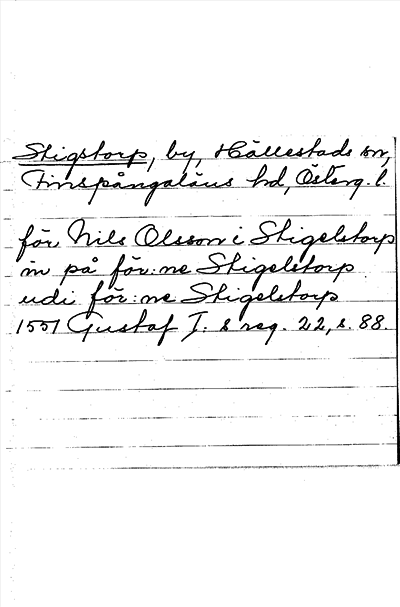 Stigstorp, by, Hällestads sn,
Finspångaläns hd, Österg. l.
för Nils Olsson i Stigelstorp
in på för:ne Stigelstorp
udi för:ne Stigelstorp
1551 Gustaf I:s reg. 22, s. 88.